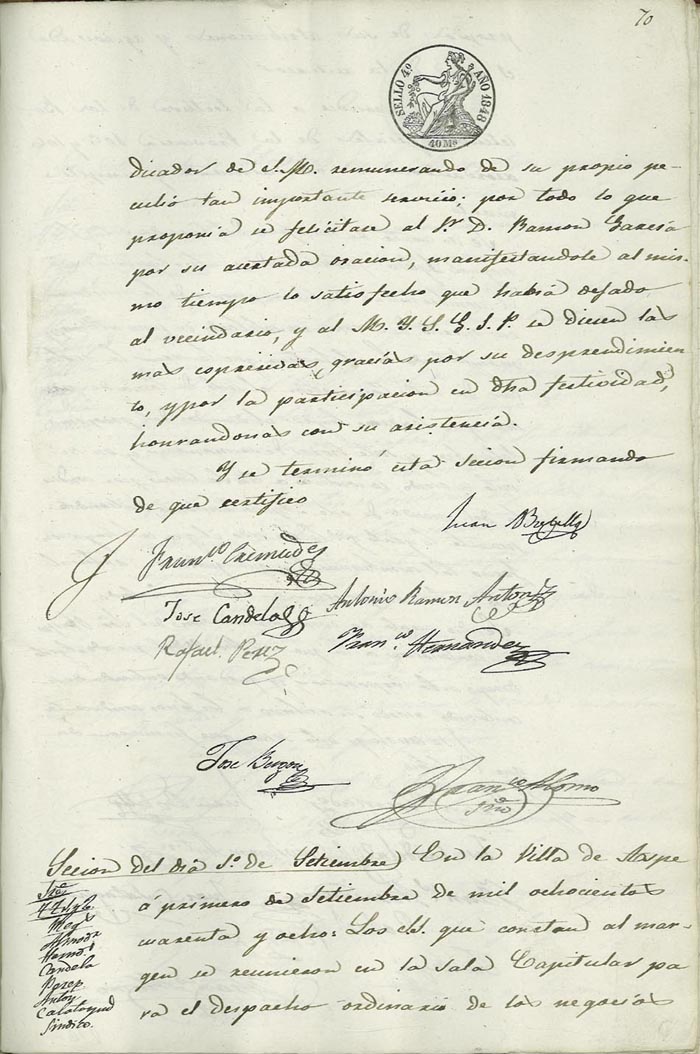 70
SELLO 4º AÑO 1848
40 Ms
dicador de S. M. remunerando de su propio pe-
culio tan importante servicio; por todo lo que
proponia se felicitase al Sr. D. Ramon Garcia
por su acertada oracion, manifestandole al mis-
mo tiempo lo satisfecho que habia dejado
al vecindario, y al M. Y. S. G. S. P. se diesen las
mas espresivas gracias por su desprendimien
to, y por la participacion en dha festividad,
honrandonos con su asistencia.
Y se terminó esta seccion firmando
de que certifico
Juan
Franco Cremades
Jose Candela
Antonio Ramon Anton
Rafael Perez
Franco Hernandez
Jose
Franco Alonso
Srio
Seccion del dia 1º de Setiembre
En la Villa de Aspe
á primero de Setiembre de mil ochocientos
cuarenta y ocho: Los SS. que constan al mar-
gen se reunieron en la sala Capitular pa-
ra el despacho ordinario de los negocios
Candela
Perez
Anton
Calatayud
Sindico.